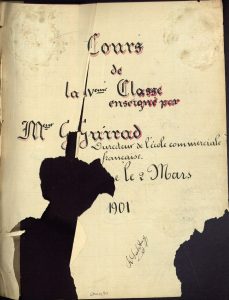 Cours
de
la Veme Classe
enseigné par
Mr G. Guirrad
Directeur de l'école commerciale
française.
le 2 Mars
1901